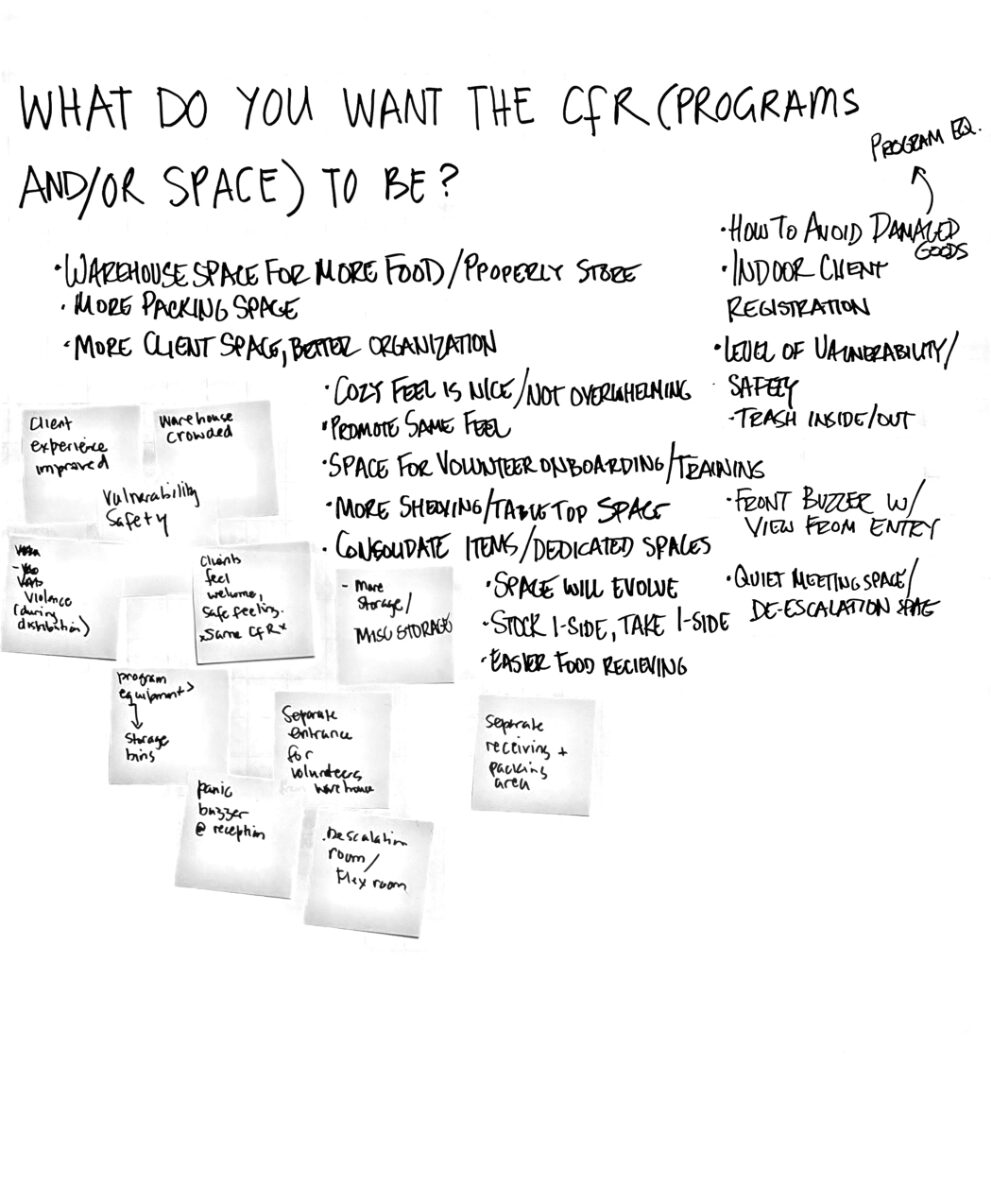 WHAT DO YOU WANT THE CfR (PROGRAMS
AND/OR SPACE) TO BE?
PROGRAM EQ.
• WAREHOUSE SPACE FOR MORE FOOD/PROPERLY STORE
• MORE PACKING SPACE
• MORE CLIENT SPACE, BETTER ORGANIZATION
• COZY FEEL IS NICE/NOT OVERWHELMING
• PROMOTE SAME FEEL
• SPACE FOR VOLUNTEER ONBOARDING/TRAINING
• MORE SHELVING/TABLETOP SPACE
• CONSOLIDATE ITEMS/DEDICATED SPACES
• SPACE WILL EVOLVE
• STOCK 1-SIDE, TAKE 1-SIDE
• EASIER FOOD RECIEVING
• HOW TO AVOID DAMAGED
GOODS
• INDOOR CLIENT
REGISTRATION
• LEVEL OF VULNERABILITY/
SAFETY
- TRASH INSIDE/OUT
• FRONT BUZZER W/
VIEW FROM ENTRY
• QUIET MEETING SPACE/
DE-ESCALATION SPACE
Client
experience
improved
Warehouse
crowded
Vulnerability
Safety
Violence
(during
distribution)
Clients
feel
welcome,
safe feeling.
*Same CfR*
- More
Storage/
MISC STORAGE
program
equipment>
Storage
bins
Separate
entrance
for
volunteers
warehouse
Separate
receiving +
packing
area
panic
buzzer
@ reception
Descalation
room/
flex room